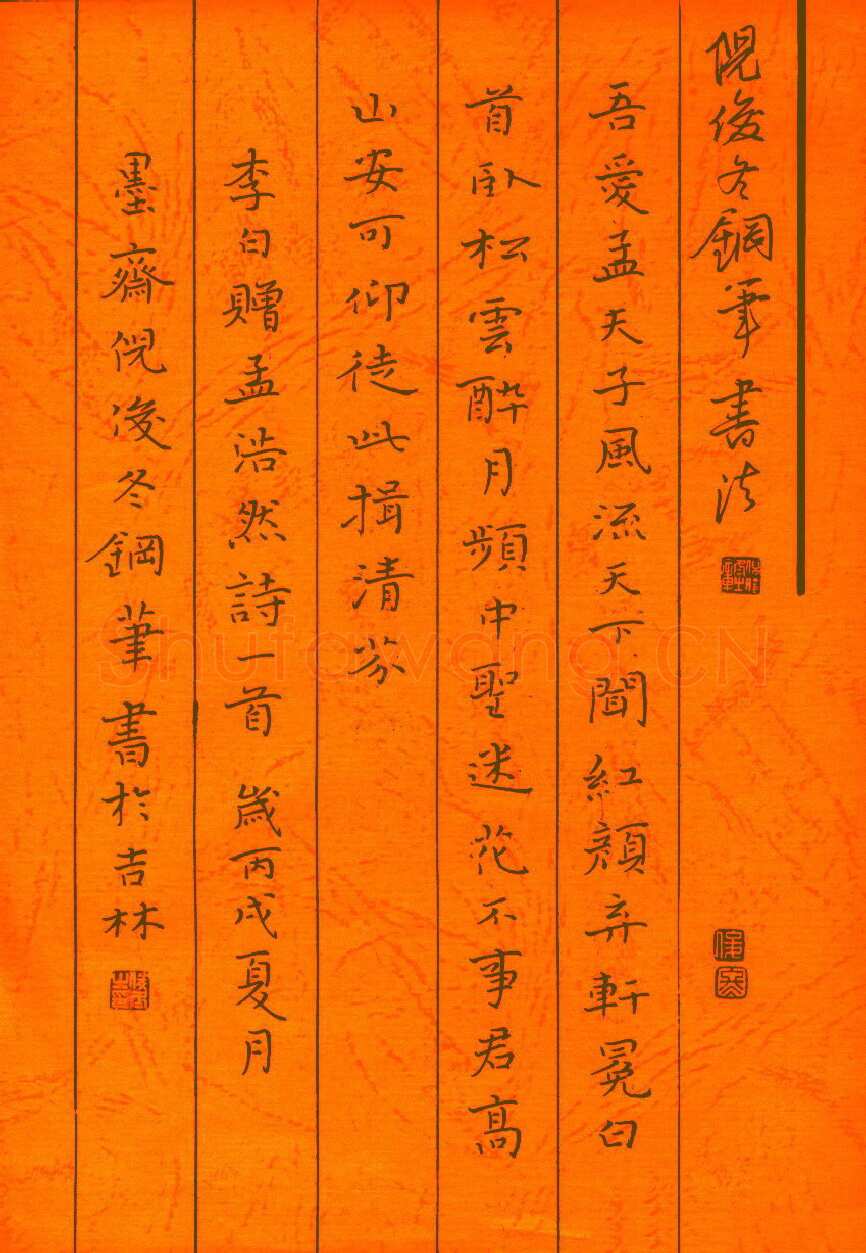 倪俊冬鋼筆書法
吾愛孟夫子風流天下聞紅顏弃軒冕白
首卧松雲醉月頻中聖迷花不事君高
山安可仰徒此揖清芬
李白贈孟浩然詩一首 歲丙戌夏月
墨齋倪俊冬鋼筆書於吉林
Shufawang.CN